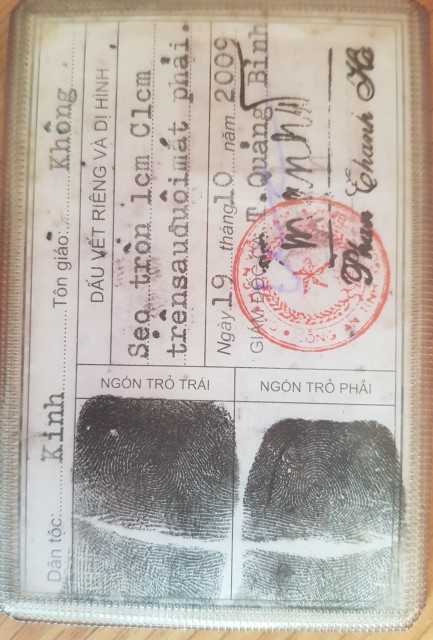 Dân tộc: Kinh Tôn giáo: Không
NGÓN TRỎ TRÁI
NGÓN TRỎ PHẢI
DẤU VẾT RIÊNG VÀ DỊ HÌNH
Sẹo tròn 1cm C1cm
trênsauđuôimắt phải.
Ngày 19 tháng 10 năm 2009
GIÁM ĐỐC T.Quảng Bình
CÔNG AN
Phan Thanh Hà